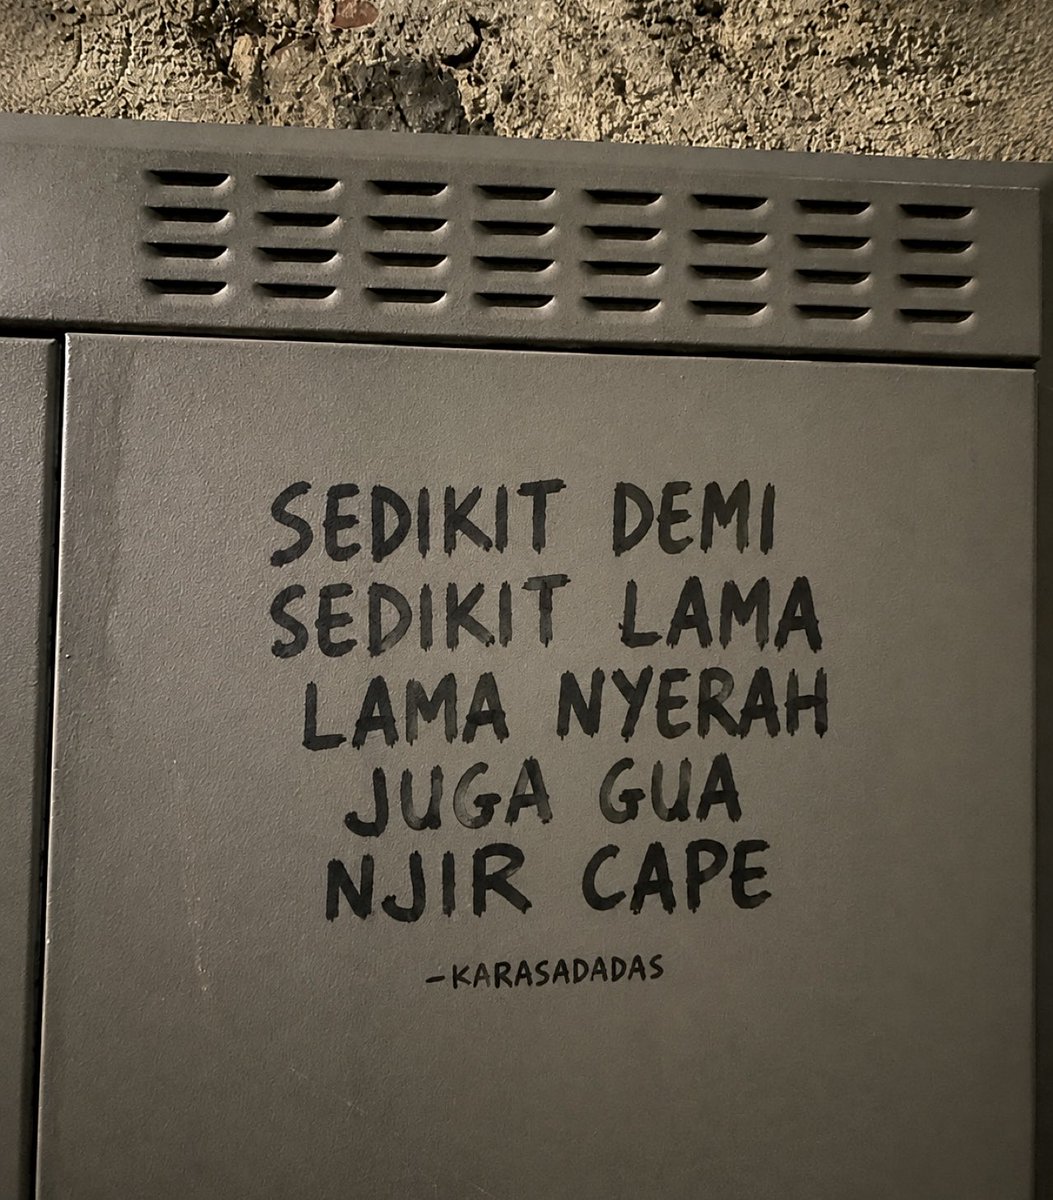 SEDIKIT DEMI
SEDIKIT LAMA
LAMA NYERAH
JUGA GUA
NJIR CAPE
-KARASADADAS